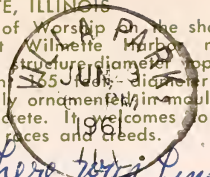 TE, ILLINOIS
of Worship on the sho
t Wilmette Harbor n
structure diameter opp
65 feet, diameter
ly ornamented in moul
crete. It welcomes fo
races and creeds.
PARK
JUN 3
PM
1961
ILL